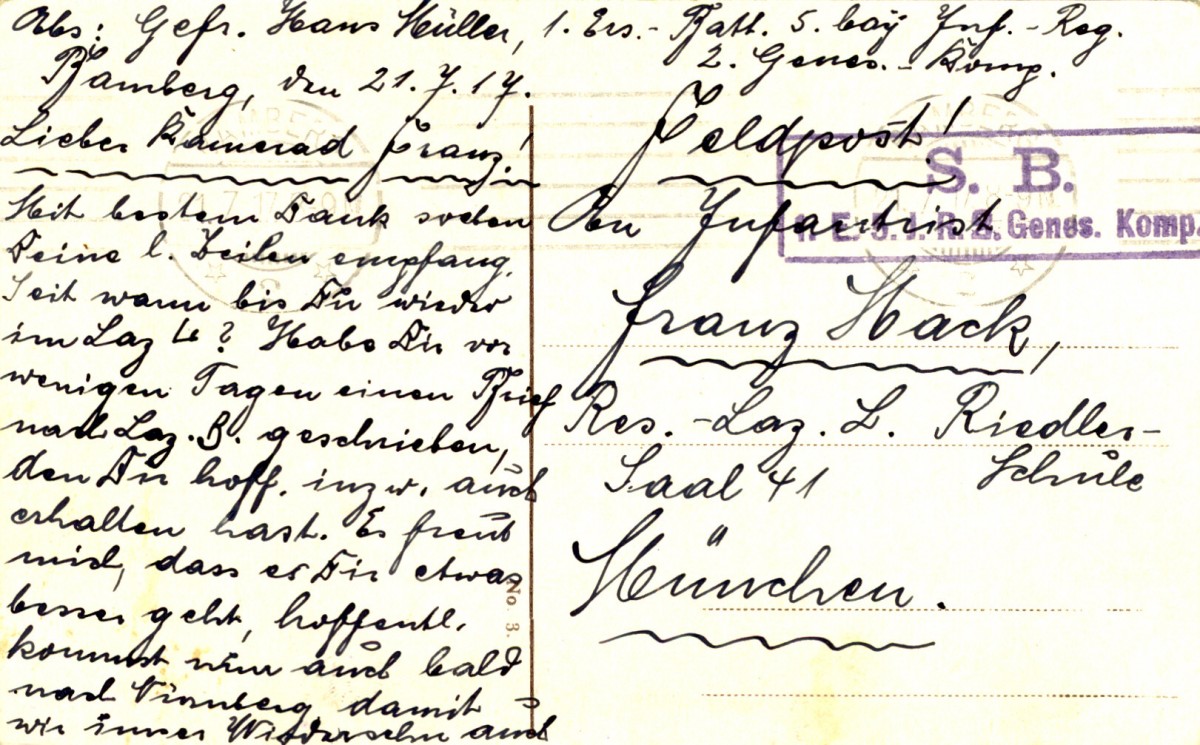 Abs: Gefr. Hans Müller, 1. Ers.- Batt. 5. bay Inf.-Reg.
2. Genes.-Komp.
Bamberg, den 21.7.17.
Lieber Kamerad Franz!
Mit bestem Dank soeben
Deine l. Zeilen empfang.
Seit wann bis Du wieder
im Laz L? Habe Dir vor
wenigen Tagen einen Brief
nach Laz. B. geschrieben,
den Du hoff. inzw. auch
erhalten hast. Es freut
mich, dass es Dir etwas
besser geht, hoffentl.
kommst nun auch bald
nach Nürnberg damit
wir unser Wiedersehn auch
No. 3.
Feldpost!
S. B.
E. 5. I. R. 2. Genes. Komp.
An Infantrist
Franz Hack,
Res.-Laz. L. Riedler-
Schule
Saal 41
München.